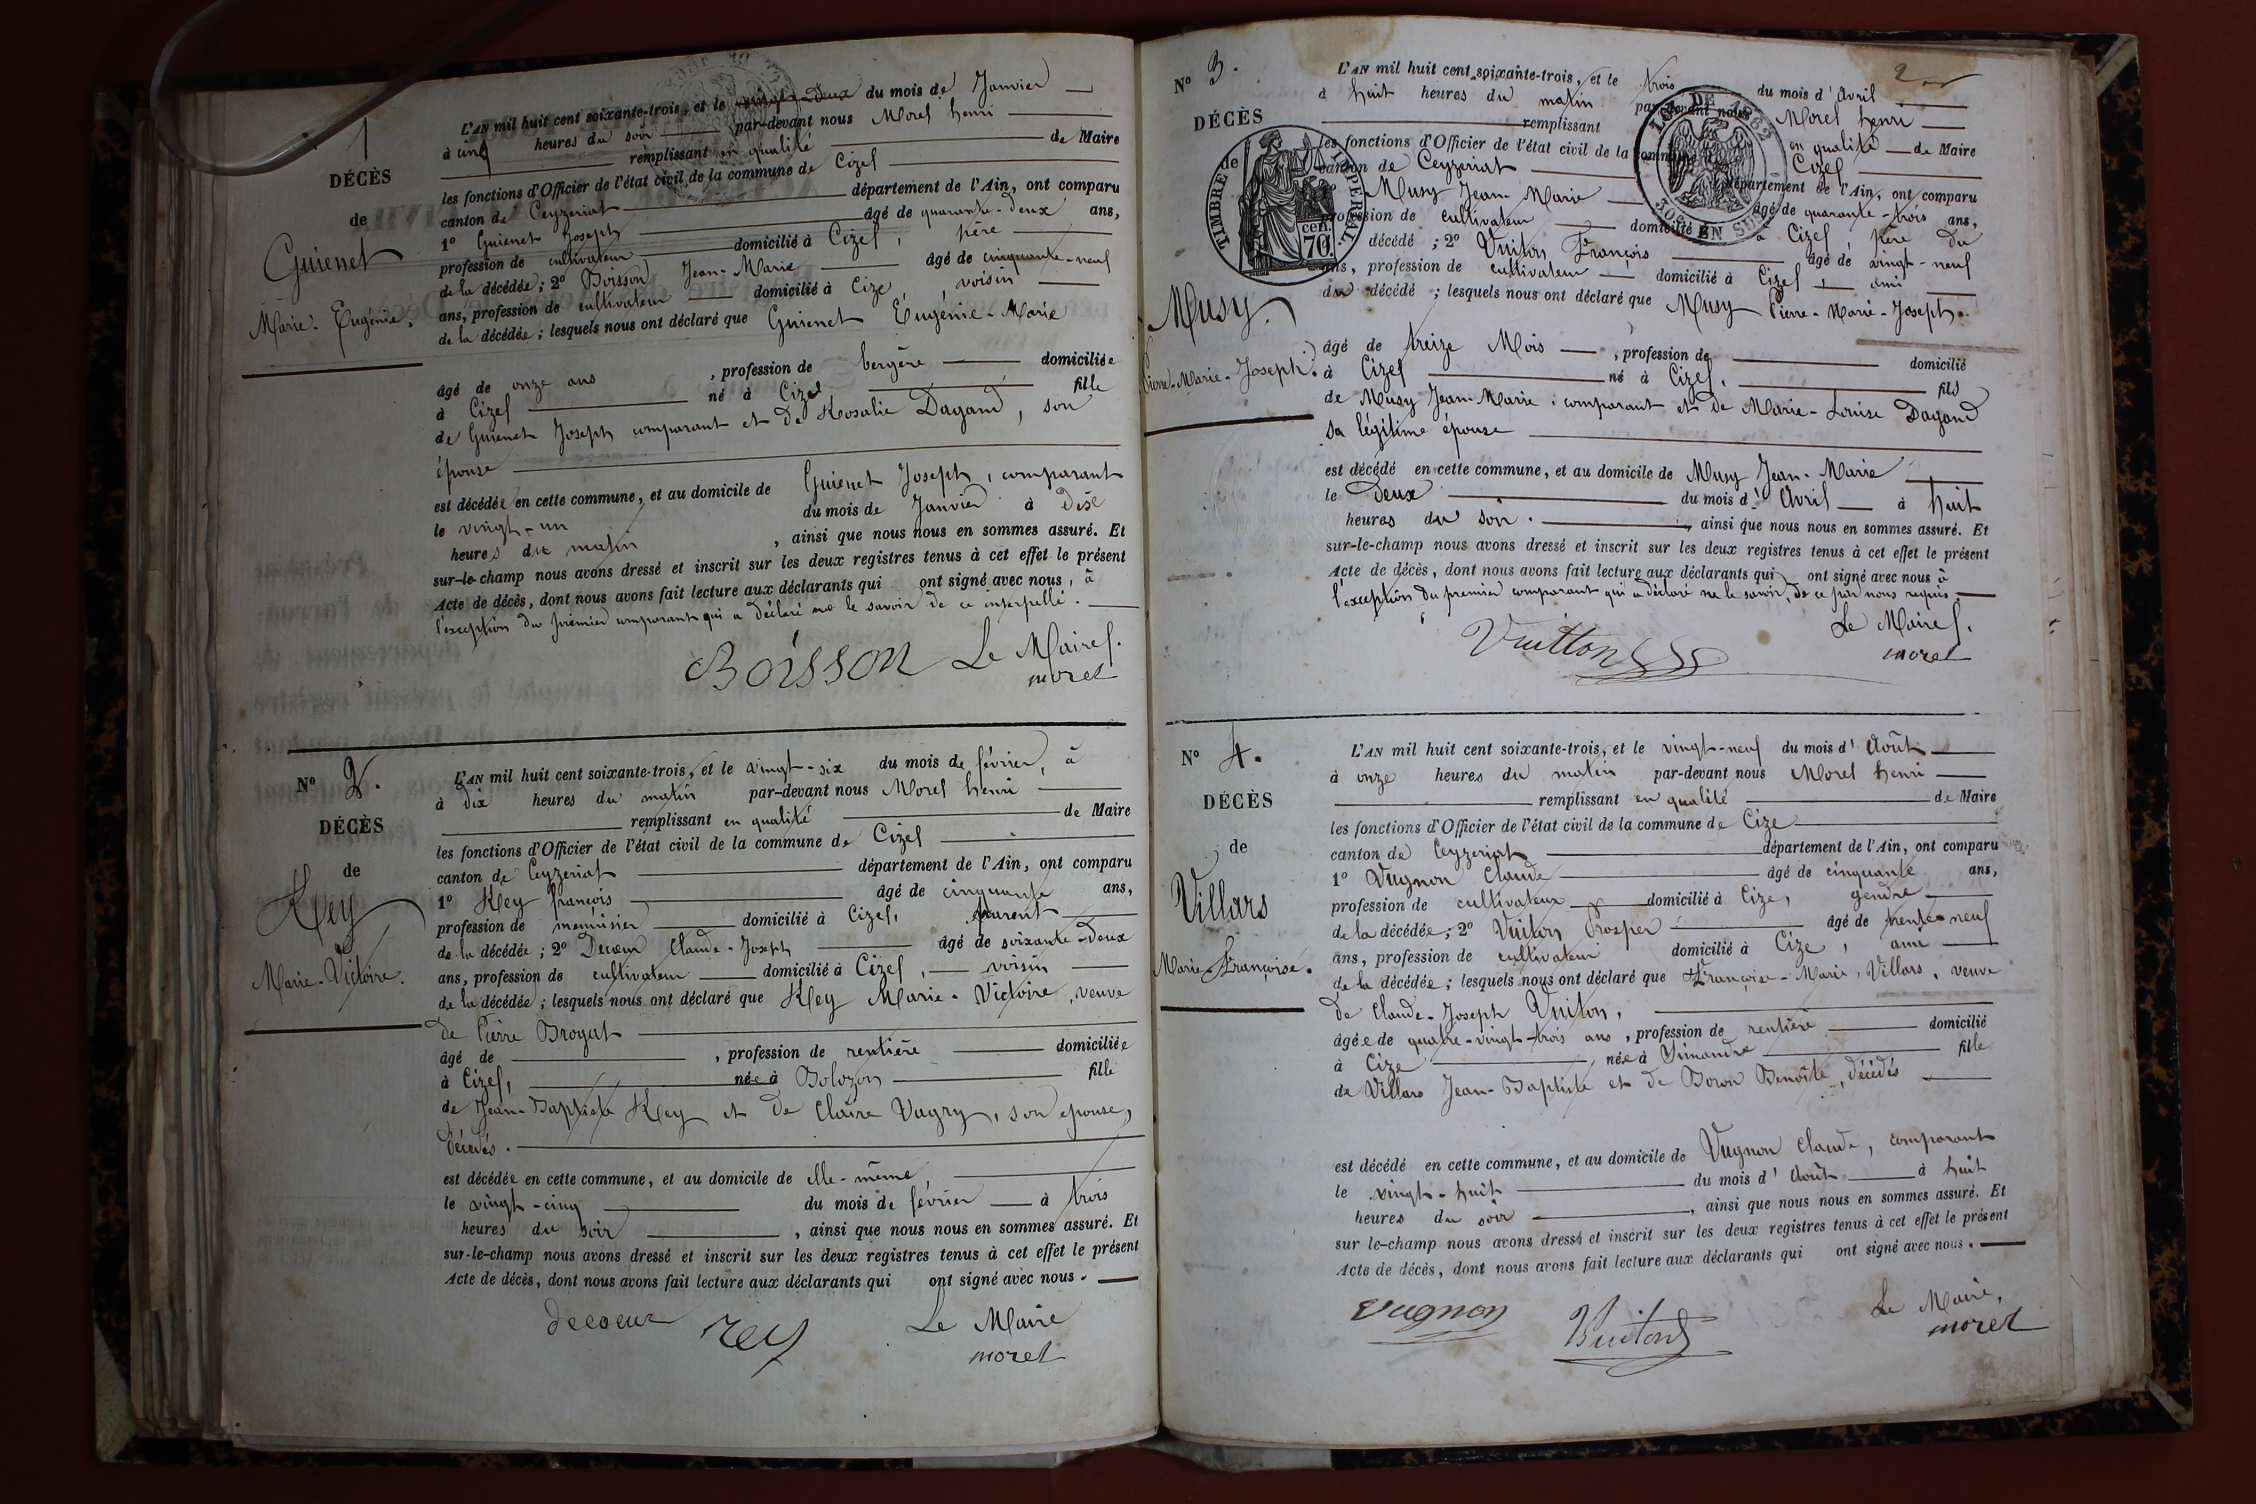 1
DÉCÈS
de
Guienet
Marie-Eugénie.
L'AN mil huit cent soixante-trois, et le vingt-deux du mois de Janvier
à cinq heures du soir par-devant nous Morel henri
remplissant en qualité de Maire
les fonctions d'Officier de l'état civil de la commune de Cizef
canton de Ceyzeriat département de l'Ain, ont comparu
1° Guienet Joseph âgé de quarante-deux ans,
profession de cultivateur domicilié à Cizef, père
de la décédée; 2° Boisson Jean-Marie âgé de cinquante-neuf
ans, profession de cultivateur domicilié à Cize voisin
de la décédée; lesquels nous ont déclaré que Guienet Eugénie-Marie
âgé de onze ans, profession de bergère domiciliée
à Cizef né à Cizef fille
de Guienet Joseph comparant et de Rosalie Dagand, son
épouse
est décédée en cette commune, et au domicile de Guienet Joseph, comparant
le vingt-un du mois de Janvier à dix
heures du matin, ainsi que nous nous en sommes assuré. Et
sur-le-champ nous avons dressé et inscrit sur les deux registres tenus à cet effet le présent
Acte de décès, dont nous avons fait lecture aux déclarants qui ont signé avec nous, à
l'exception du premier comparant qui a déclaré ne le savoir de ce interpellé.
Boisson Le Maire
morel
N° 2.
DÉCÈS
de
Rey
Marie-Victoire.
L'AN mil huit cent soixante-trois, et le vingt-six du mois de février, à
à dix heures du matin par-devant nous Morel henri
remplissant en qualité de Maire
les fonctions d'Officier de l'état civil de la commune de Cizef
canton de Ceyzeriat département de l'Ain, ont comparu
1° Rey françois âgé de cinquante ans,
profession de menuisier domicilié à Cizef, parent
de la décédée; 2° Decoeur Claude-Joseph âgé de soixante-deux
ans, profession de cultivateur domicilié à Cizef, voisin
de la décédée; lesquels nous ont déclaré que Rey Marie-Victoire, veuve
de Pierre Broyat
âgé de , profession de rentière domiciliée
à Cizef, née à Bolozon fille
de Jean-Baptiste Rey et de Claire Vagry, son épouse,
décédés.
est décédée en cette commune, et au domicile de elle-même
le vingt-cinq du mois de février à trois
heures du soir, ainsi que nous nous en sommes assuré. Et
sur-le-champ nous avons dressé et inscrit sur les deux registres tenus à cet effet le présent
Acte de décès, dont nous avons fait lecture aux déclarants qui ont signé avec nous.
decoeur rey Le Maire
morel
2
N° 3.
DÉCÈS
TIMBRE IMPÉRIAL.
70 cen.
LOI DE 1862
EN SUS
Musy.
Pierre-Marie-Joseph.
L'AN mil huit cent soixante-trois, et le trois du mois d'Avril
à huit heures du matin par-devant nous Morel henri
remplissant en qualité de Maire
les fonctions d'Officier de l'état civil de la commune Cizef
canton de Ceyzeriat département de l'Ain, ont comparu
Musy Jean-Marie âgé de quarante-trois ans,
profession de cultivateur domicilié à Cizef père du
décédé; 2° Vuiton François âgé de vingt-neuf
ans, profession de cultivateur domicilié à Cizef, ami
du décédé; lesquels nous ont déclaré que Musy Pierre-Marie-Joseph.
âgé de treize Mois, profession de domicilié
à Cizef né à Cizef. fils
de Musy Jean-Marie, comparant et de Marie-Louise Dagand
sa légitime épouse
est décédé en cette commune, et au domicile de Musy Jean-Marie
le deux du mois d'Avril à huit
heures du soir., ainsi que nous nous en sommes assuré. Et
sur-le-champ nous avons dressé et inscrit sur les deux registres tenus à cet effet le présent
Acte de décès, dont nous avons fait lecture aux déclarants qui ont signé avec nous à
l'exception du premier comparant qui a déclaré ne le savoir, de ce par nous requis.
Vuitton Le Maire
morel
N° 4.
DÉCÈS
de
Villars
Marie-Françoise.
L'AN mil huit cent soixante-trois, et le vingt-neuf du mois d'Août
à onze heures du matin par-devant nous Morel henri
remplissant en qualité de Maire
les fonctions d'Officier de l'état civil de la commune de Cize
canton de Ceyzeriat département de l'Ain, ont comparu
1° Vugnon Claude âgé de cinquante ans,
profession de cultivateur domicilié à Cize, gendre
de la décédée; 2° Vuiton Prosper âgé de trente-neuf
ans, profession de cultivateur domicilié à Cize, ami
de la décédée; lesquels nous ont déclaré que Françoise-Marie Villars, veuve
de Claude-Joseph Vuiton,
âgée de quatre-vingt-trois ans, profession de rentière domicilié
à Cize, née à Simandre fille
de Villars Jean-Baptiste et de Boron Benoîte, décédés
est décédé en cette commune, et au domicile de Vugnon Claude, comparant
le vingt-huit du mois d'Août à huit
heures du soir, ainsi que nous nous en sommes assuré. Et
sur le-champ nous avons dressé et inscrit sur les deux registres tenus à cet effet le présent
Acte de décès, dont nous avons fait lecture aux déclarants qui ont signé avec nous.
Vugnon Vuiton Le Maire,
morel